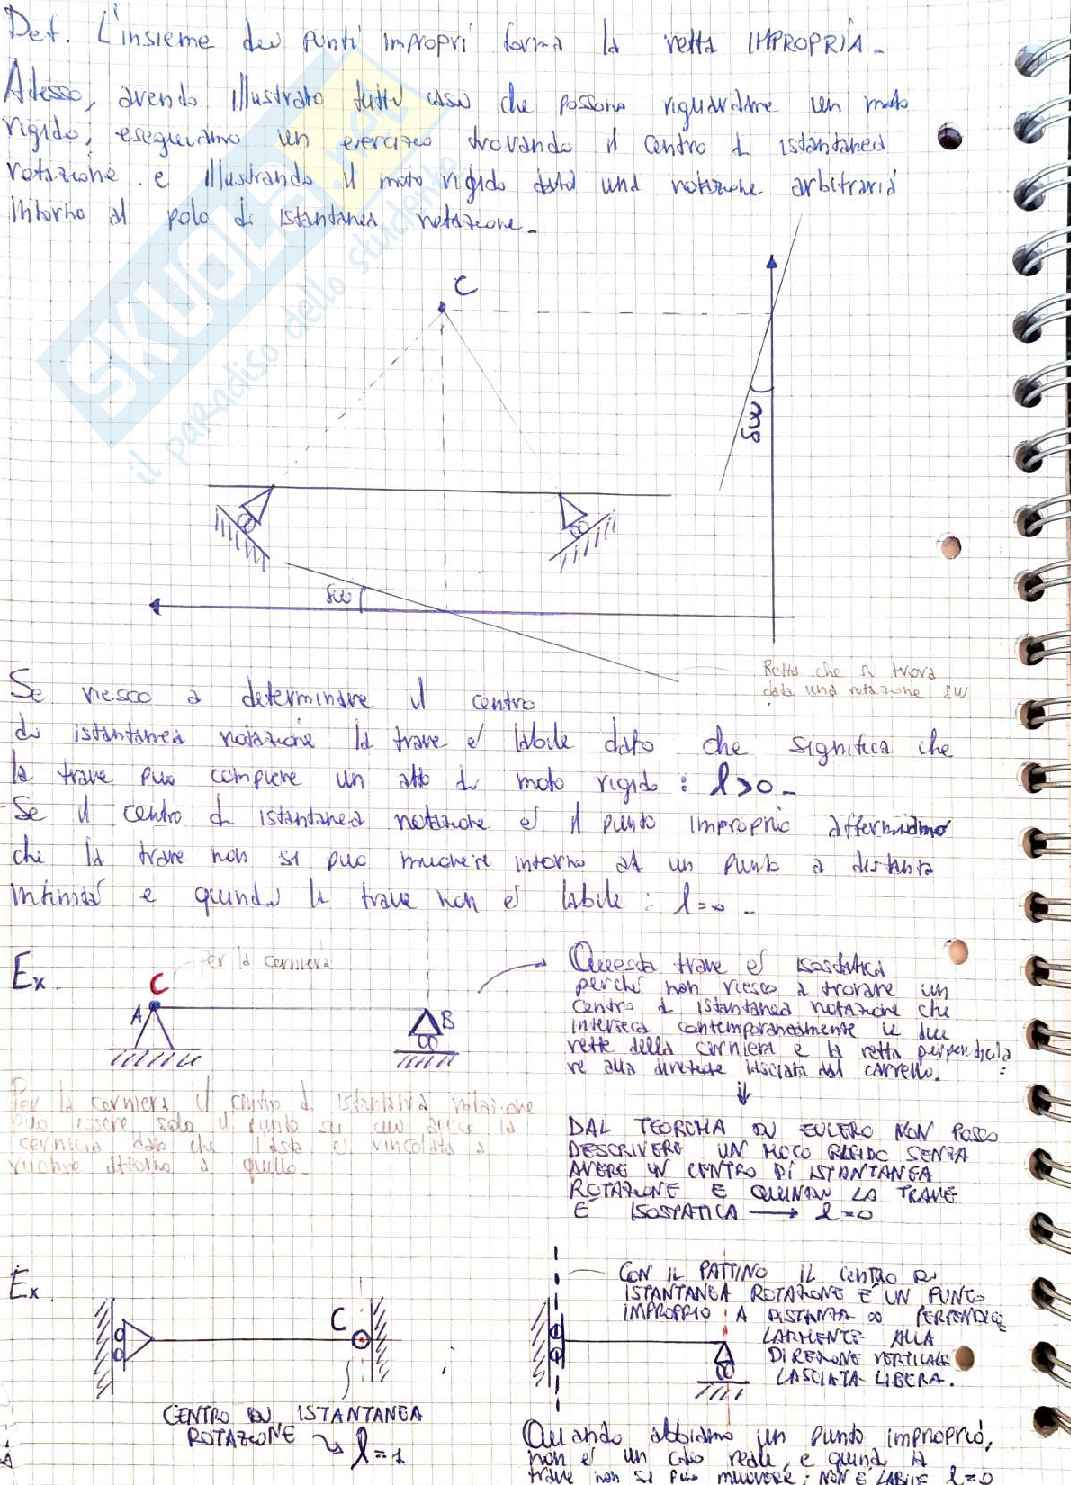 Def. L'insieme dei punti impropri forma la retta IMPROPRIA -
Adesso, avendo illustrato tutti i casi che possono riguardare un moto
rigido, eseguiamo un esercizio trovando il centro di istantanea
rotazione e illustrando il moto rigido data una rotazione arbitraria
intorno al polo di istantanea rotazione -
C
δω
δω
Retta che si trova
data una rotazione δω
Se riesco a determinare il centro
di istantanea rotazione la trave é labile dato che significa che
la trave puo compiere un atto di moto rigido : l>0 -
Se il centro di istantanea rotazione é il punto improprio affermiamo
che la trave non si puo muovere intorno ad un punto a distanza
infinita e quindi la trave non é labile : l=0 -
Ex.
Per la cerniera
C
A
B
Questa trave é isostatica
perché non riesco a trovare un
centro di istantanea rotazione che
interseca contemporaneamente le due
rette della cerniera e la retta perpendicola
re alla direzione lasciata dal carrello.
Per la cerniera il centro di istantanea rotazione
puo essere solo il punto su cui giace la
cerniera dato che l'asta é vincolata a
ruotare attorno a quello -
DAL TEOREMA DI EULERO NON POSSO
DESCRIVERE UN MOTO RIGIDO SENZA
AVERE UN CENTRO DI ISTANTANEA
ROTAZIONE E QUINDI LA TRAVE
É ISOSTATICA → l=0
Ex.
C
CENTRO DI ISTANTANEA
ROTAZIONE
l=1
CON IL PATTINO IL CENTRO DI
ISTANTANEA ROTAZIONE É UN PUNTO
IMPROPRIO A DISTANZA ∞ PERPENDICO
LARMENTE ALLA
DIREZIONE VERTICALE
LASCIATA LIBERA.
Quando abbiamo un punto improprio,
non é un caso reale, e quindi la
trave non si puo muovere : NON É LABILE l=0
SKUOLA.net
il paradiso dello studente